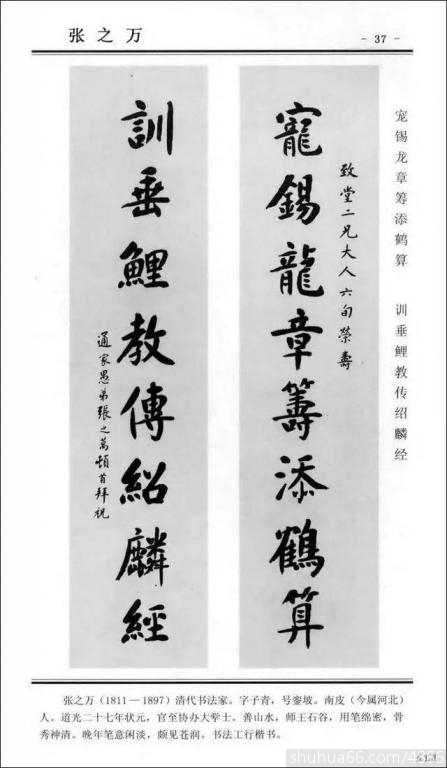 张之万
- 37 -
宠锡龙章筹添鹤算 训垂鲤教传绍麟经
致堂二兄大人六旬榮壽
寵錫龍章籌添鶴算
訓垂鯉教傳紹麟經
通家愚弟張之萬頓首拜祝
张之万（1811—1897）清代书法家。字子青，号銮坡。南皮（今属河北）
人。道光二十七年状元，官至协办大学士。善山水，师王石谷，用笔绵密，骨
秀神清。晚年笔意闲淡，颇见苍润。书法工行楷书。